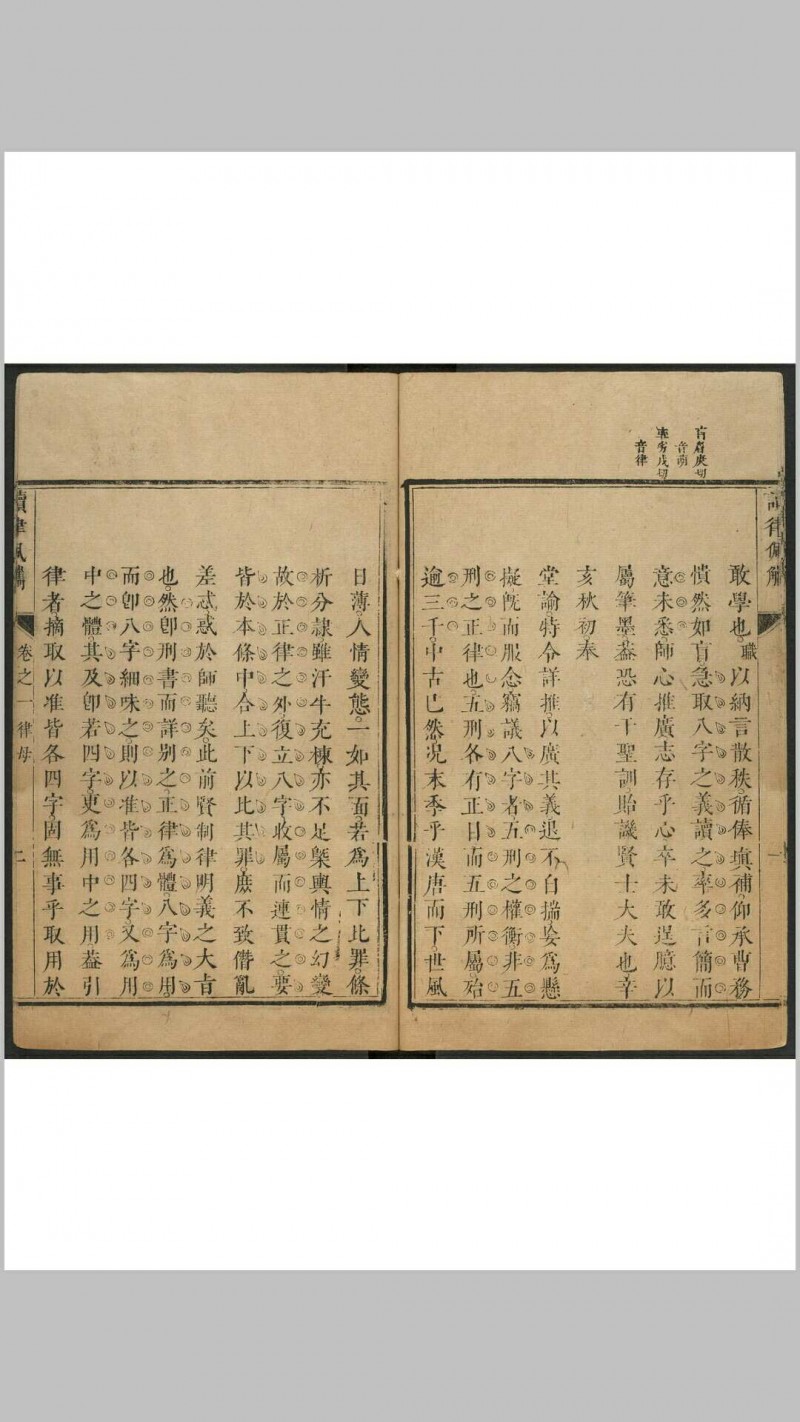 讀律佩觿
一
音萌
音律
敢學也職以納言散秩循俸塡補仰承曹務
憒然如盲急取八字之義讀之率多言簡而
意未悉師心推廣志存乎心卒未敢逞臆以
屬筆墨葢恐有干聖訓貽譏賢士大夫也辛
亥秋初奉
堂諭特令詳推以廣其義退不自揣妄爲懸
擬旣而服念竊議八字者五刑之權衡非五
刑之正律也五刑各有正目而五刑所屬殆
逾三千中古已然况末季乎漢唐而下世風
日薄人情變態一如其面若爲上下比罪條
析分隷雖汗牛充棟亦不足槩輿情之幻變
故於正律之外復立八字收屬而連貫之要
皆於本條中合上下以比其罪庶不致僭亂
差忒惑於師聽矣此前賢制律明義之大旨
也然卽刑書而詳别之正律爲體八字爲用
而卽八字細味之則以准皆各四字又爲用
中之體其及卽若四字更爲用中之用葢引
律者摘取以准皆各四字固無事乎取用於
讀律佩觿
卷之一 律母
二